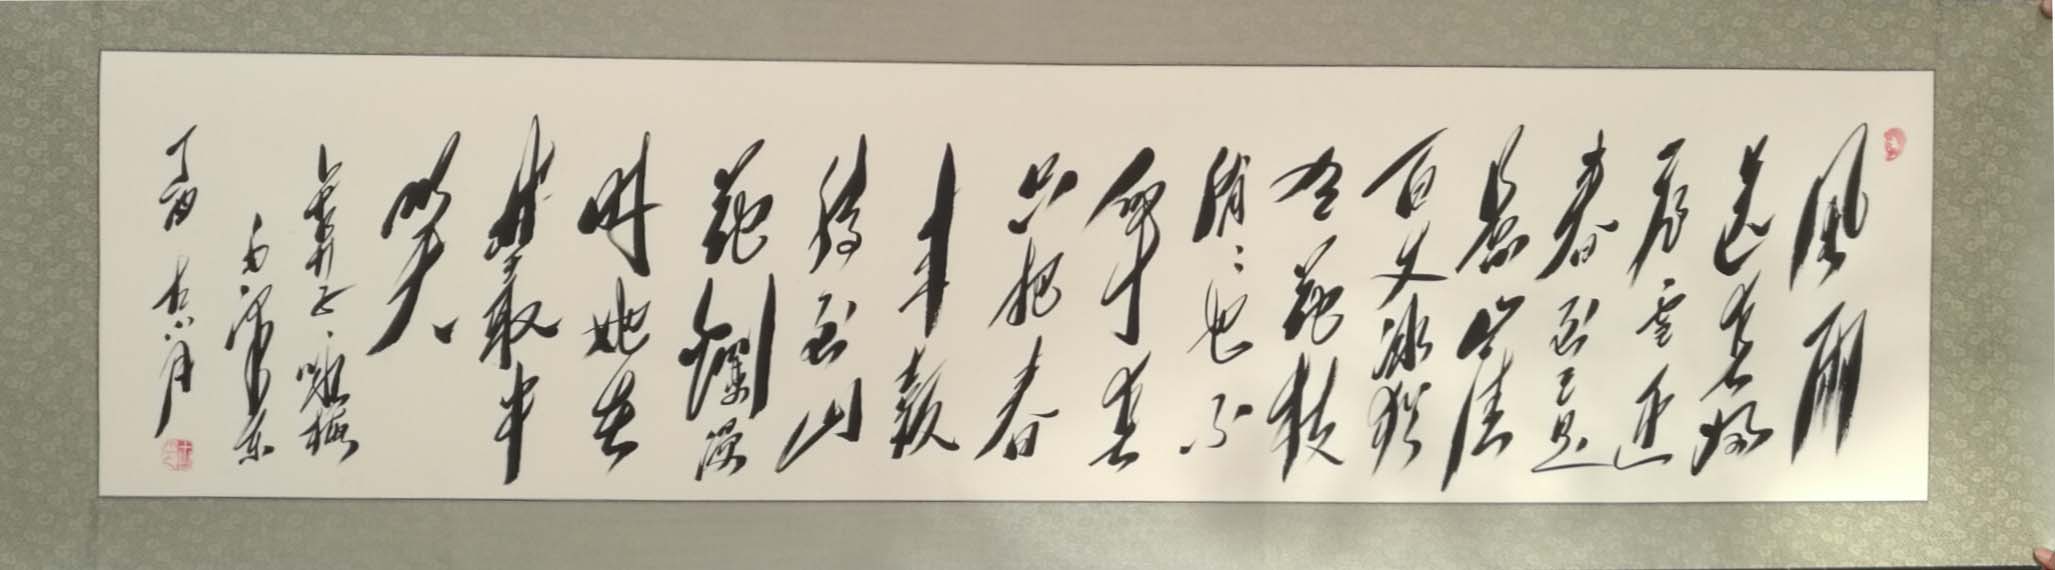 风雨
送春归
飛雪迎
春到已是
悬崖
百丈冰猶
有花枝
俏〻也不
争春
只把春
来報
待到山
花爛漫
时她在
叢中
笑
卜算子咏梅
毛泽东
丁酉 六月